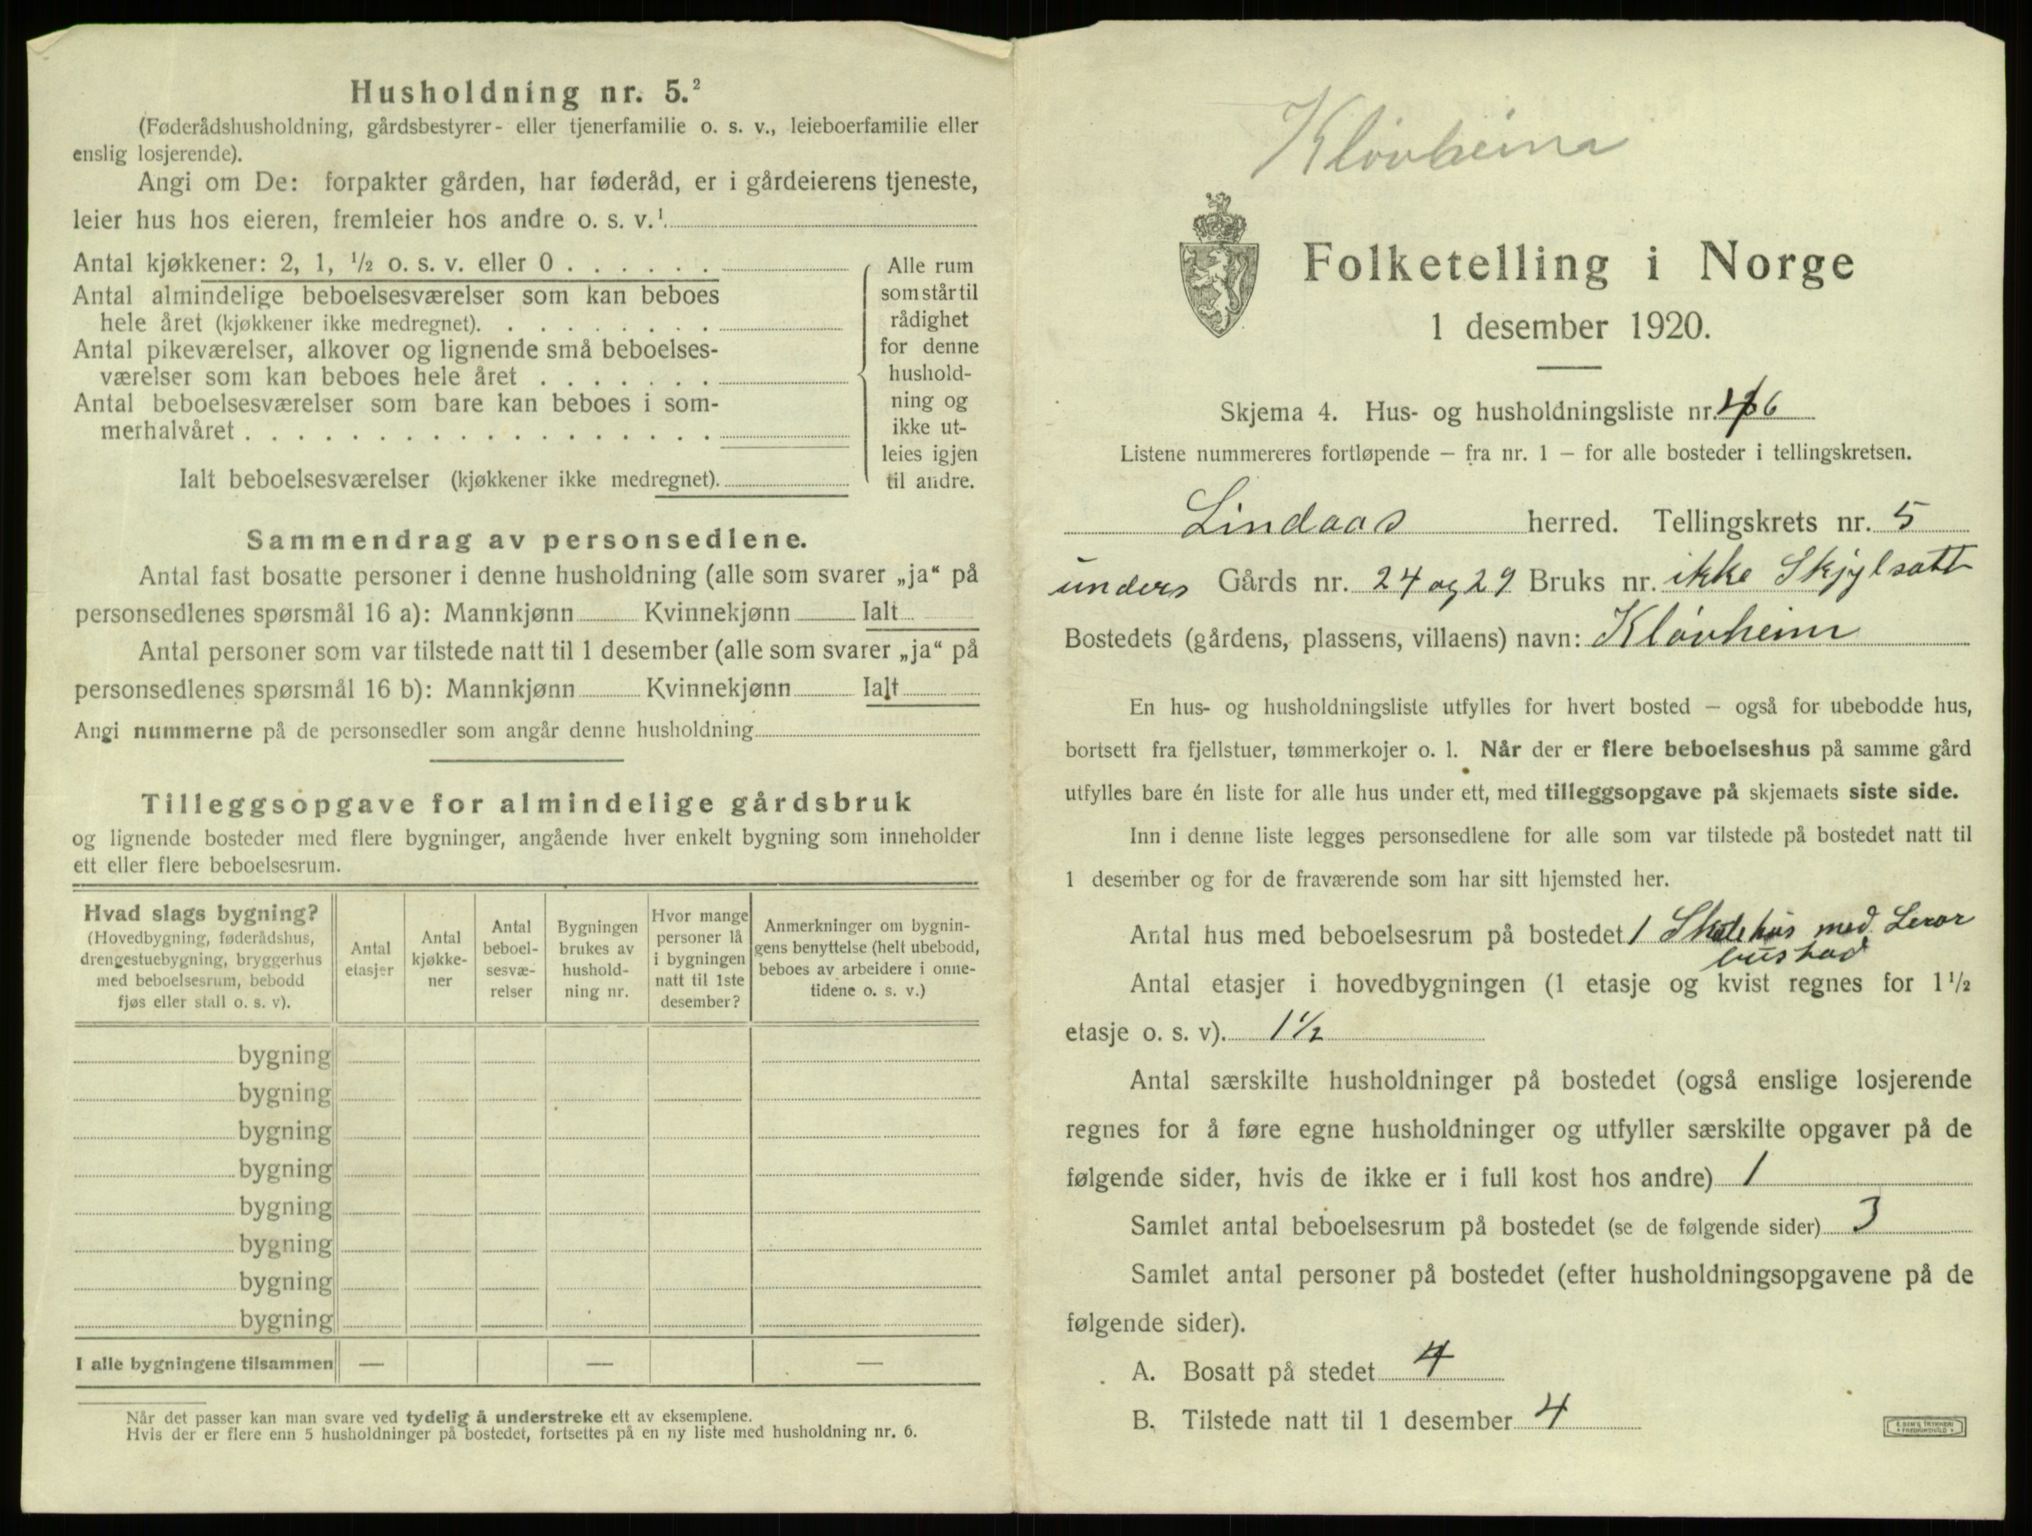 Husholdning nr. 5.²
(Føderådshusholdning, gårdsbestyrer- eller tjenerfamilie o. s. v., leieboerfamilie eller
enslig losjerende).
Angi om De: forpakter gården, har føderåd, er i gårdeierens tjeneste,
leier hus hos eieren, fremleier hos andre o. s. v.¹
Antal kjøkkener: 2, 1, ½ o. s. v. eller 0 . . . . . .
Antal almindelige beboelsesværelser som kan beboes
hele året (kjøkkener ikke medregnet). . . . . . . . .
Antal pikeværelser, alkover og lignende små beboelses-
værelser som kan beboes hele året . . . . . . .
Antal beboelsesværelser som bare kan beboes i som-
merhalvåret . . . . . . . . . . . . . . . . . .
Ialt beboelsesværelser (kjøkkener ikke medregnet).
Alle rum
som står til
rådighet
for denne
hushold-
ning og
ikke ut-
leies igjen
til andre.
Sammendrag av personsedlene.
Antal fast bosatte personer i denne husholdning (alle som svarer „ja“ på
personsedlenes spørsmål 16 a): Mannkjønn Kvinnekjønn Ialt
Antal personer som var tilstede natt til 1 desember (alle som svarer „ja“ på
personsedlenes spørsmål 16 b): Mannkjønn Kvinnekjønn Ialt
Angi nummerne på de personsedler som angår denne husholdning
Tilleggsopgave for almindelige gårdsbruk
og lignende bosteder med flere bygninger, angående hver enkelt bygning som inneholder
ett eller flere beboelsesrum.
Hvad slags bygning?
(Hovedbygning, føderådshus,
drengestuebygning, bryggerhus
med beboelsesrum, bebodd
fjøs eller stall o. s. v).
Antal
etasjer
Antal
kjøkke-
ner
Antal
beboel-
sesvæ-
relser
Bygningen
brukes av
hushold-
ning nr.
Hvor mange
personer lå
i bygningen
natt til 1ste
desember?
Anmerkninger om bygnin-
gens benyttelse (helt ubebodd,
beboes av arbeidere i onne-
tidene o. s. v.)
bygning
bygning
bygning
bygning
bygning
bygning
bygning
bygning
I alle bygningene tilsammen — — —
Når det passer kan man svare ved tydelig å understreke ett av eksemplene.
Hvis der er flere enn 5 husholdninger på bostedet, fortsettes på en ny liste med husholdning nr. 6.
Kløvheim
Folketelling i Norge
1 desember 1920.
Skjema 4. Hus- og husholdningsliste nr. 6
Listene nummereres fortløpende – fra nr. 1 – for alle bosteder i tellingskretsen.
Lindaas herred. Tellingskrets nr. 5
unders Gårds nr. 24 og 29 Bruks nr. ikke Skjylsatt
Bostedets (gårdens, plassens, villaens) navn: Kløvheim
En hus- og husholdningsliste utfylles for hvert bosted – også for ubebodde hus,
bortsett fra fjellstuer, tømmerkojer o. l. Når der er flere beboelseshus på samme gård
utfylles bare én liste for alle hus under ett, med tilleggsopgave på skjemaets siste side.
Inn i denne liste legges personsedlene for alle som var tilstede på bostedet natt til
1 desember og for de fraværende som har sitt hjemsted her.
Antal hus med beboelsesrum på bostedet 1 Skolehus med Lerar
bustad
Antal etasjer i hovedbygningen (1 etasje og kvist regnes for 1 ½
etasje o. s. v). 1 ½
Antal særskilte husholdninger på bostedet (også enslige losjerende
regnes for å føre egne husholdninger og utfyller særskilte opgaver på de
følgende sider, hvis de ikke er i full kost hos andre) 1
Samlet antal beboelsesrum på bostedet (se de følgende sider) 3
Samlet antal personer på bostedet (efter husholdningsopgavene på de
følgende sider).
A. Bosatt på stedet 4
B. Tilstede natt til 1 desember 4